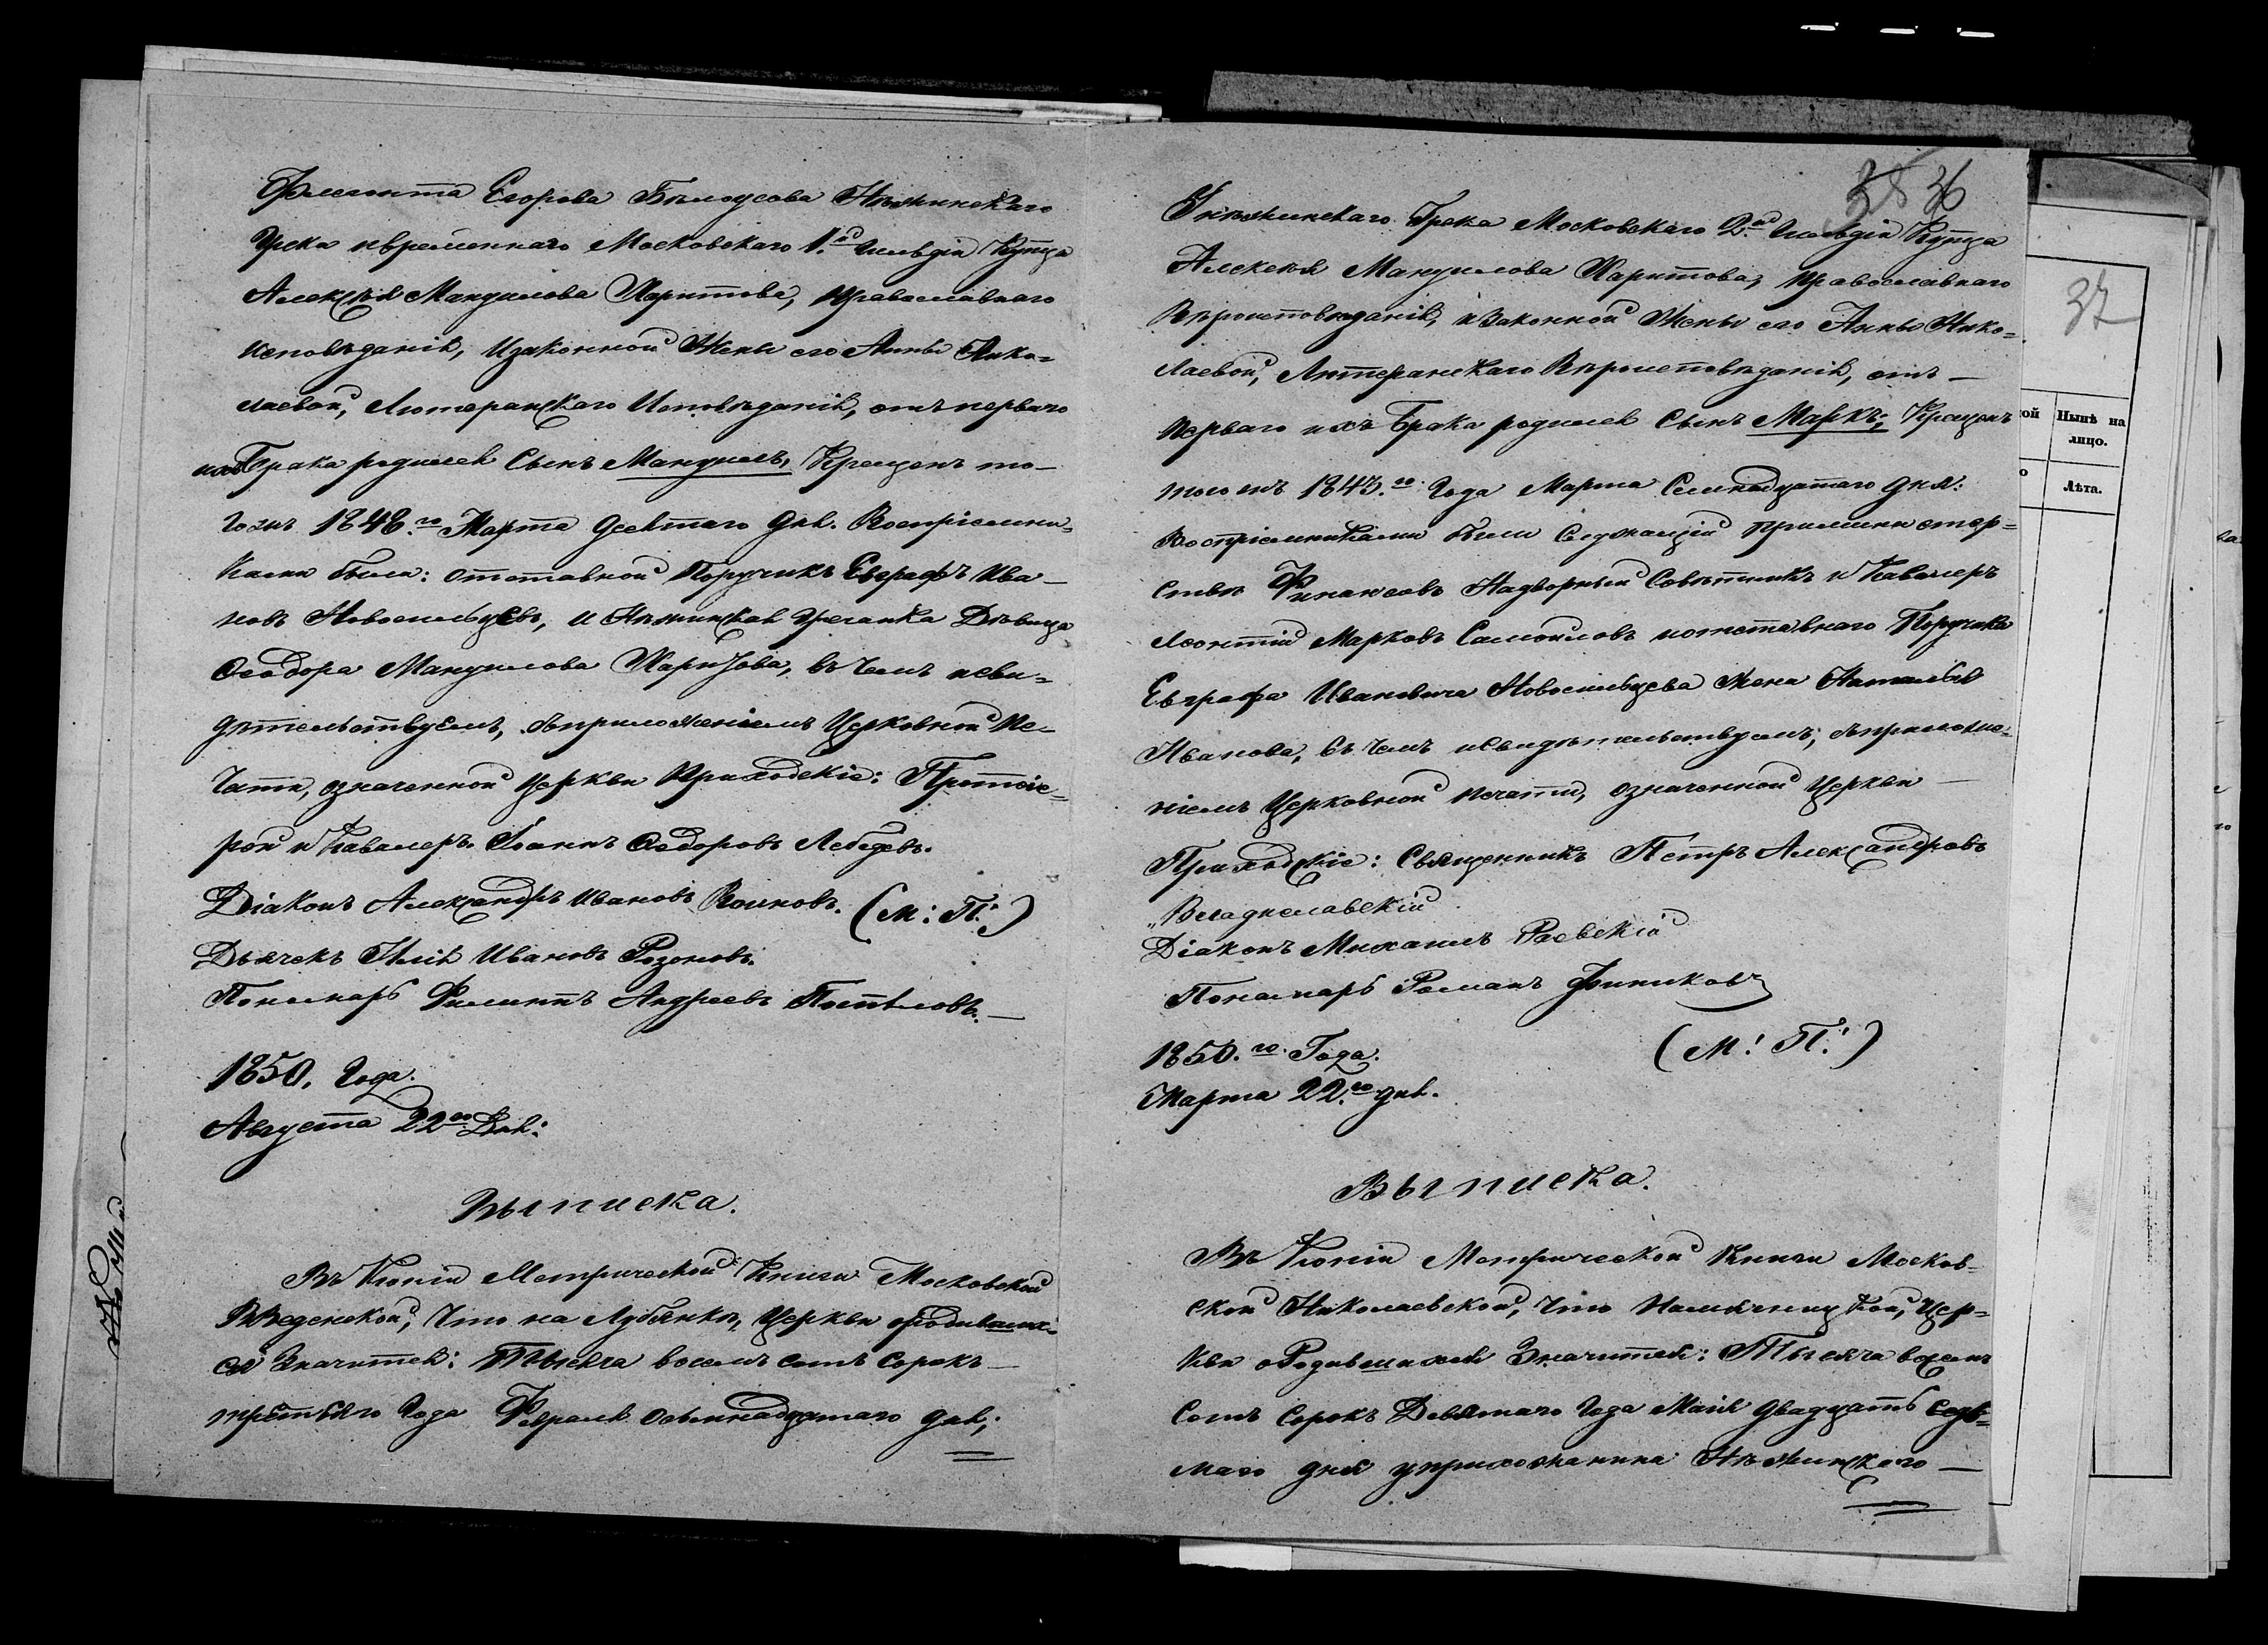 Флегонта Егорова Бѣлоусова Нѣжинскаго
Грека и временнаго Московскаго 1.й Гильдіи Купца
Алексѣя Мануилова Харитова, православнаго
исповѣданія, и законной Жены его Анны Нико=
лаевой, Лютеранскаго Исповѣданія, отъ перваго
ихъ брака родился Сынъ Мануилъ, Крещенъ то-
гожъ 1848.го Марта десятаго дня. Воспріемни-
ками были: отставной Поручикъ Евграфъ Ива-
новъ Новосильцевъ, и Нѣжинская Гречанка Дѣвица
Ѳеодора Мануилова Харитова, въ чемъ и сви=
дѣтельствуемъ, съ приложеніемъ Церковной пе-
чати, означенной церкви Приходскіе: Протоіе=
рей и Кавалеръ Іоаннъ Ѳедоровъ Лебедевъ.
Діаконъ Александръ Ивановъ Воиновъ. (М: П:)
Дьячекъ Илія Ивановъ Розоновъ.
Пономарь Филиппъ Андреевъ Постѣловъ.
1850. Года.
Августа 22го Дня:
Выписка.
Въ Копіи Метрической Книги Московской
Введенской, что на Лубянкѣ, Церкви о родившихъ-
ся значится: Тысяча восемь сотъ сорокъ
третьяго Года Февраля осьмнадцатаго дня;
35 36
У Нѣжинскаго Грека Московскаго 2.й Гильдіи Купца
Алексѣя Мануилова Харитова, православнаго
Вѣроисповѣданія, и Законной Жены его Анны Нико=
лаевой, Лютеранскаго Вѣроисповѣданія, отъ
перваго ихъ Брака родился Сынъ Маркъ; Крещенъ
тогожъ 1843.го Года Марта Семнадцатаго дня:
Воспріемниками были Служащій при Министер=
ствѣ Финансовъ Надворный Совѣтникъ и Кавалеръ
Леонтій Марковъ Самойловъ и отставнаго Поручика
Евграфа Ивановича Новосильцева жена Наталья
Иванова, въ чемъ и свидѣтельствуемъ, съ приложе-
ніемъ Церковной печати, означенной Церкви
Приходскіе: Священникъ Петръ Александровъ
Владиславскій
Діаконъ Михаилъ Раевскій
Пономарь Романъ Финиковъ
1850.го Года. (М: П:)
Марта 22.го дня.
Выписка.
Въ Копіи Метрической Книги Москов-
ской Николаевской, что на Мясницкой, Цер=
кви о Родившихся Значится: Тысяча восемь
сотъ сорокъ Девятаго Года Маія двадцать седь=
маго дня у прихожанина Нѣжинскаго
37
ой Нынѣ на
лицо.
о Лѣта.